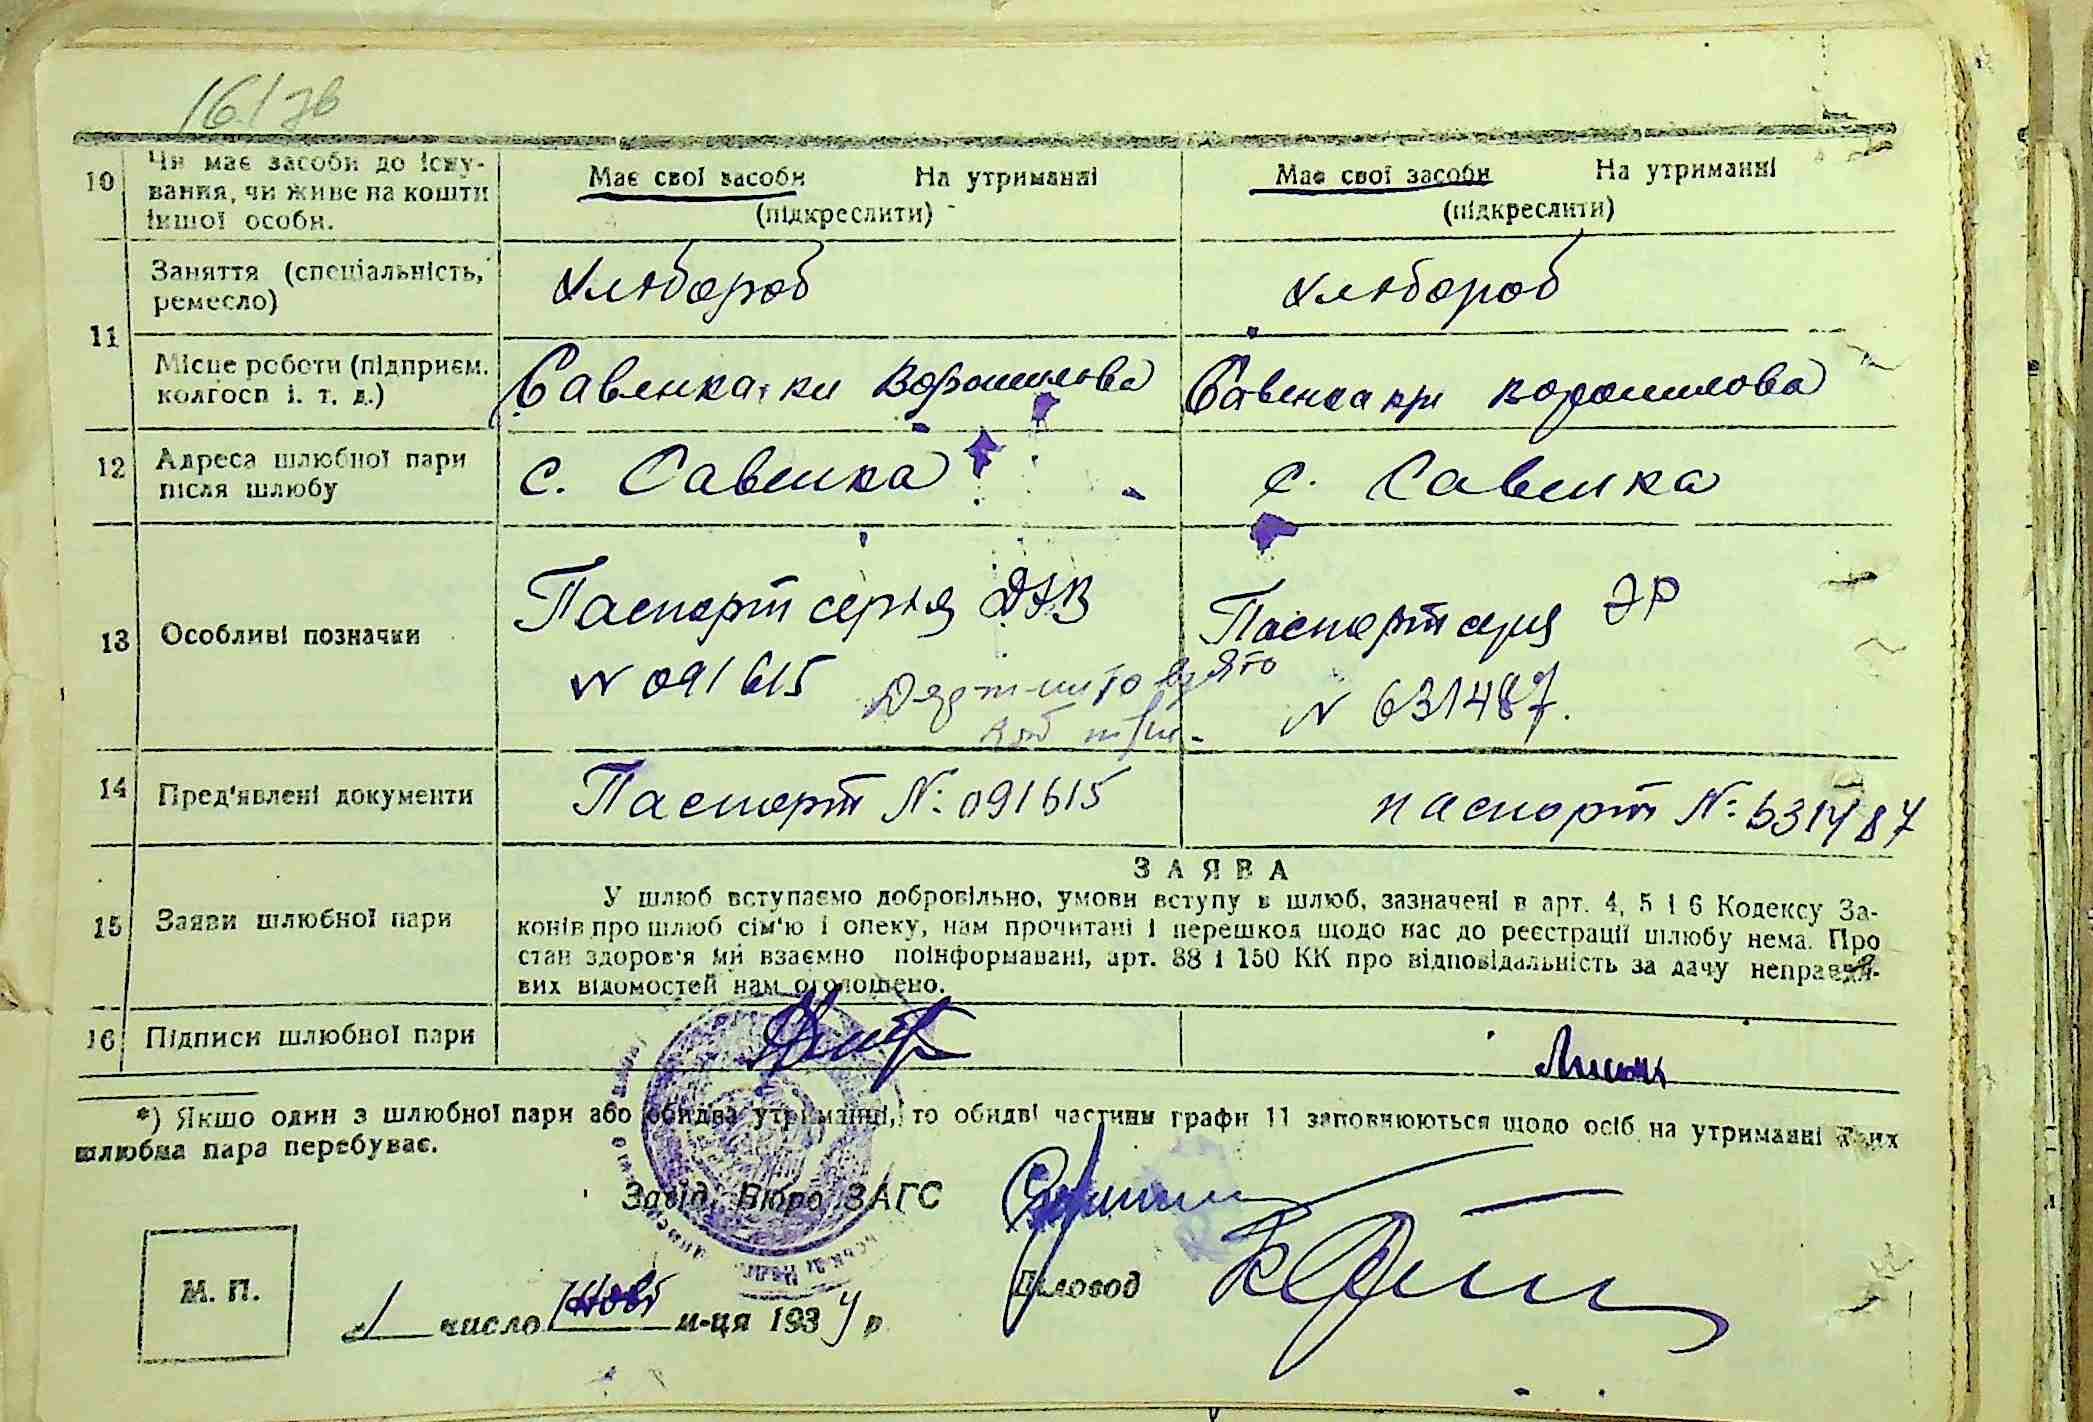 161 зв
10 Чи має засоби до існу-
вання, чи живе на кошти
іншої особи.
Має свої засоби На утриманні
(підкреслити)
Має свої засоби На утриманні
(підкреслити)
11 Заняття (спеціальність,
ремесло)
хлібороб
хлібороб
Місце роботи (підприєм.
колгосп і. т. д.)
Савенка Ворошилова
Савенка Ворошилова
12 Адреса шлюбної пари
після шлюбу
с. Савенка
с. Савенка
13 Особливі позначки
Паспорт серия
N 091615
Паспорт серия ЭР
N 631487.
14 Пред'явлені документи
Паспорт №: 091615
паспорт №: 631487
15 Заяви шлюбної пари
ЗАЯВА
У шлюб вступаємо добровільно, умови вступу в шлюб, зазначені в арт. 4, 5 і 6 Кодексу За-
конів про шлюб сім'ю і опеку, нам прочитані і перешкод щодо нас до реєстрації шлюбу нема. Про
стан здоров'я ми взаємно поінформавані, арт. 88 і 150 КК про відповідальність за дачу неправди-
вих відомостей нам оголошено.
16 Підписи шлюбної пари
*) Якщо один з шлюбної пари або обидва утриманні, то обидві частини графи 11 заповнюються щодо осіб на утриманні яких
шлюбна пара перебуває.
Завід. Бюро ЗАГС
Діловод
М. П.
1 число м-ця 1934 р